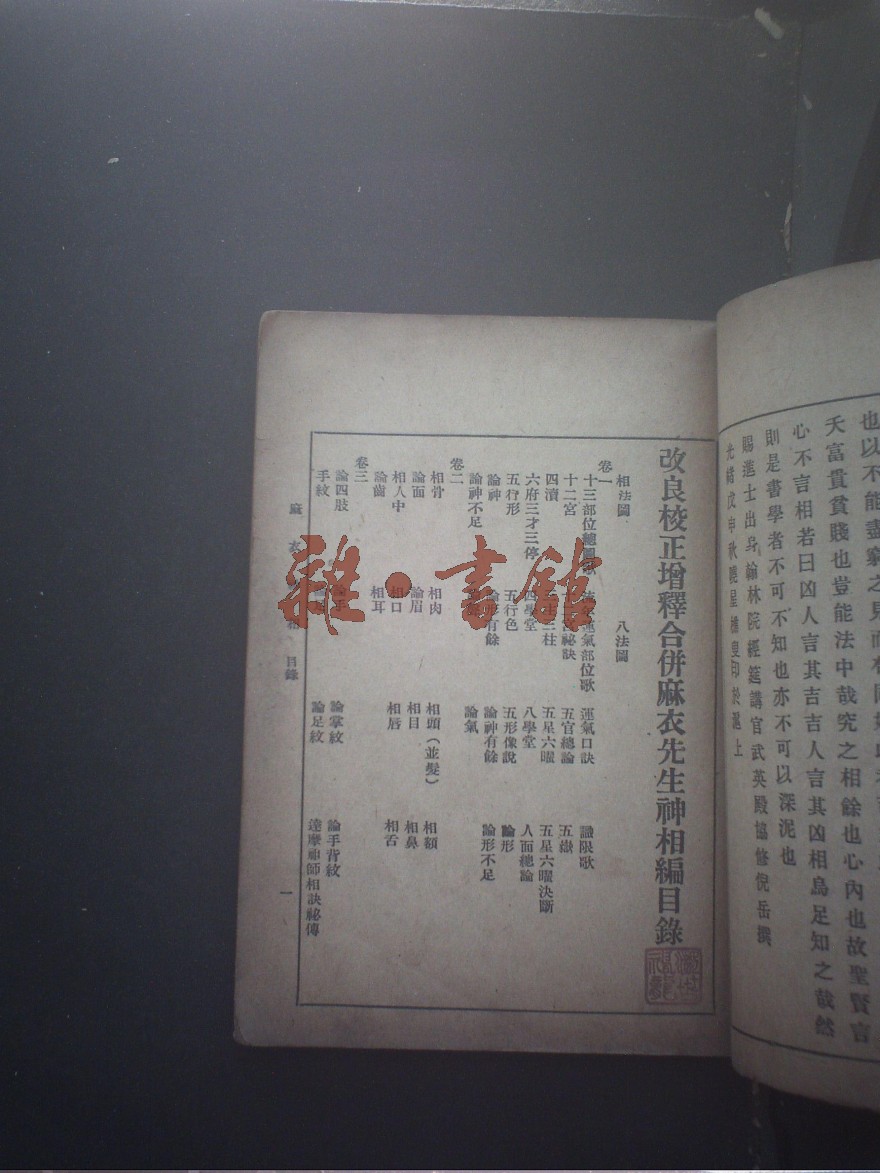 也以不能盡窮之見而
夭富貴貧賤也豈能法中哉究之相餘也心內也故聖賢言
心不言相若曰凶人言其吉吉人言其凶相烏足知之哉然
則是書學者不可不知也亦不可以深泥也
賜進士出身翰林院經筵講官武英殿協修倪岳撰
光緒戊申秋曉星樵叟印於滬上
改良校正增釋合併麻衣先生神相編目錄
相法圖 八法圖
卷一
十三部位總圖歌 運氣部位歌 運氣口訣 識限歌
十二宮 祕訣 五官總論 五嶽
四瀆 三柱 五星六曜 五星六曜決斷
六府三才三停 四學堂 八學堂 人面總論
五行形 五行色 五形像說 論形
論神 論形有餘 論神有餘 論形不足
論神不足 論氣
卷二
相骨 相肉 相頭(並髮) 相額
論面 論眉 相目 相鼻
相人中 相口 相唇 相舌
論齒 相耳
卷三
論四肢 論手 論掌紋 論手背紋
手紋 論足紋 達摩祖師相訣祕傳
麻衣 目錄 一
雜·書館